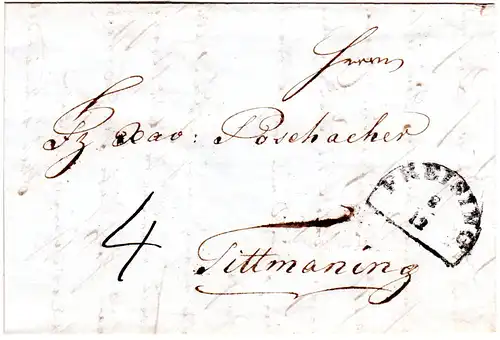 Herrn
Fz Xav: Poschacher
FREISING
8
12
4
Tittmaning